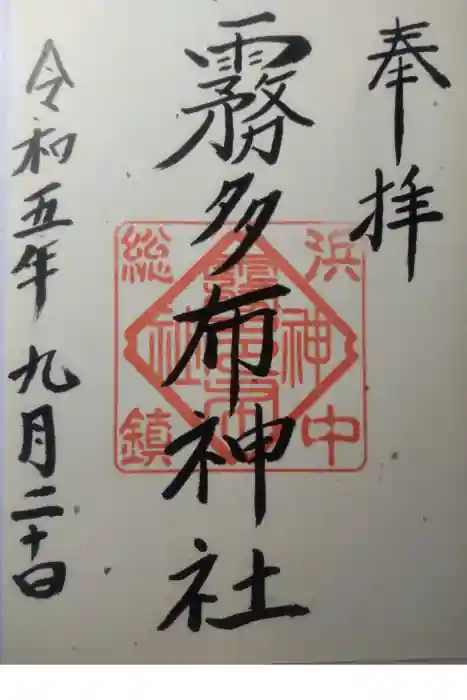 奉拝
霧多布神社
令和五年九月二十日
浜中
総鎮
霧多布
神社